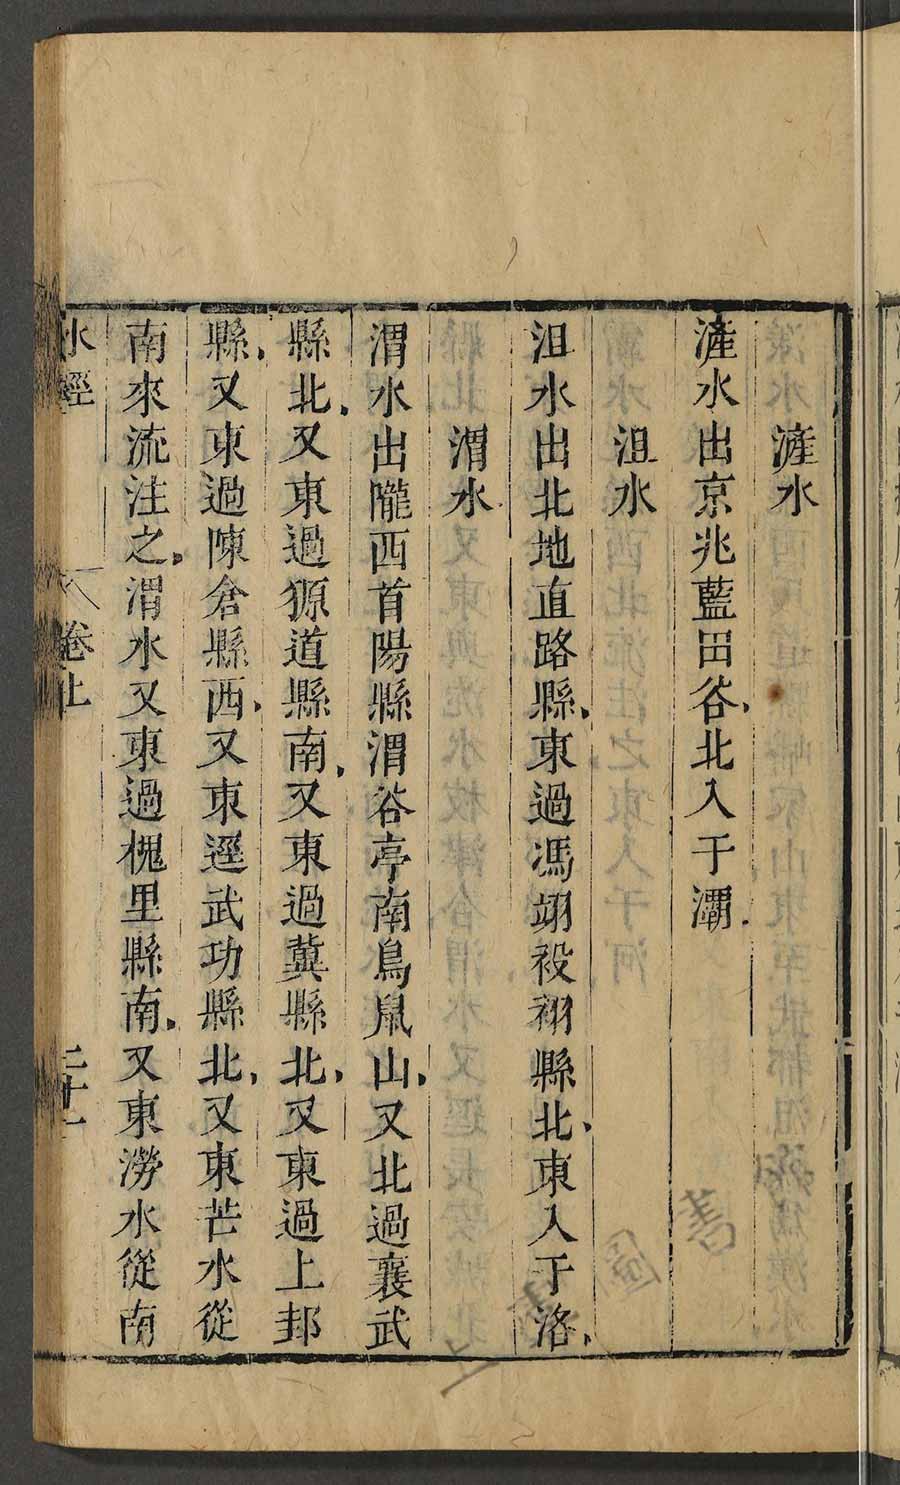 滻水
滻水出京兆藍田谷、北入于灞、
沮水
沮水出北地直路縣、東過馮翊祋祤縣北、東入于洛、
渭水
渭水出隴西首陽縣渭谷亭南鳥鼠山、又北過襄武
縣北、又東過㹠道縣南、又東過冀縣北、又東過上邽
縣、又東過陳倉縣西、又東逕武功縣北、又東芒水從
南來流注之、渭水又東過槐里縣南、又東澇水從南
水經 卷上 二十一